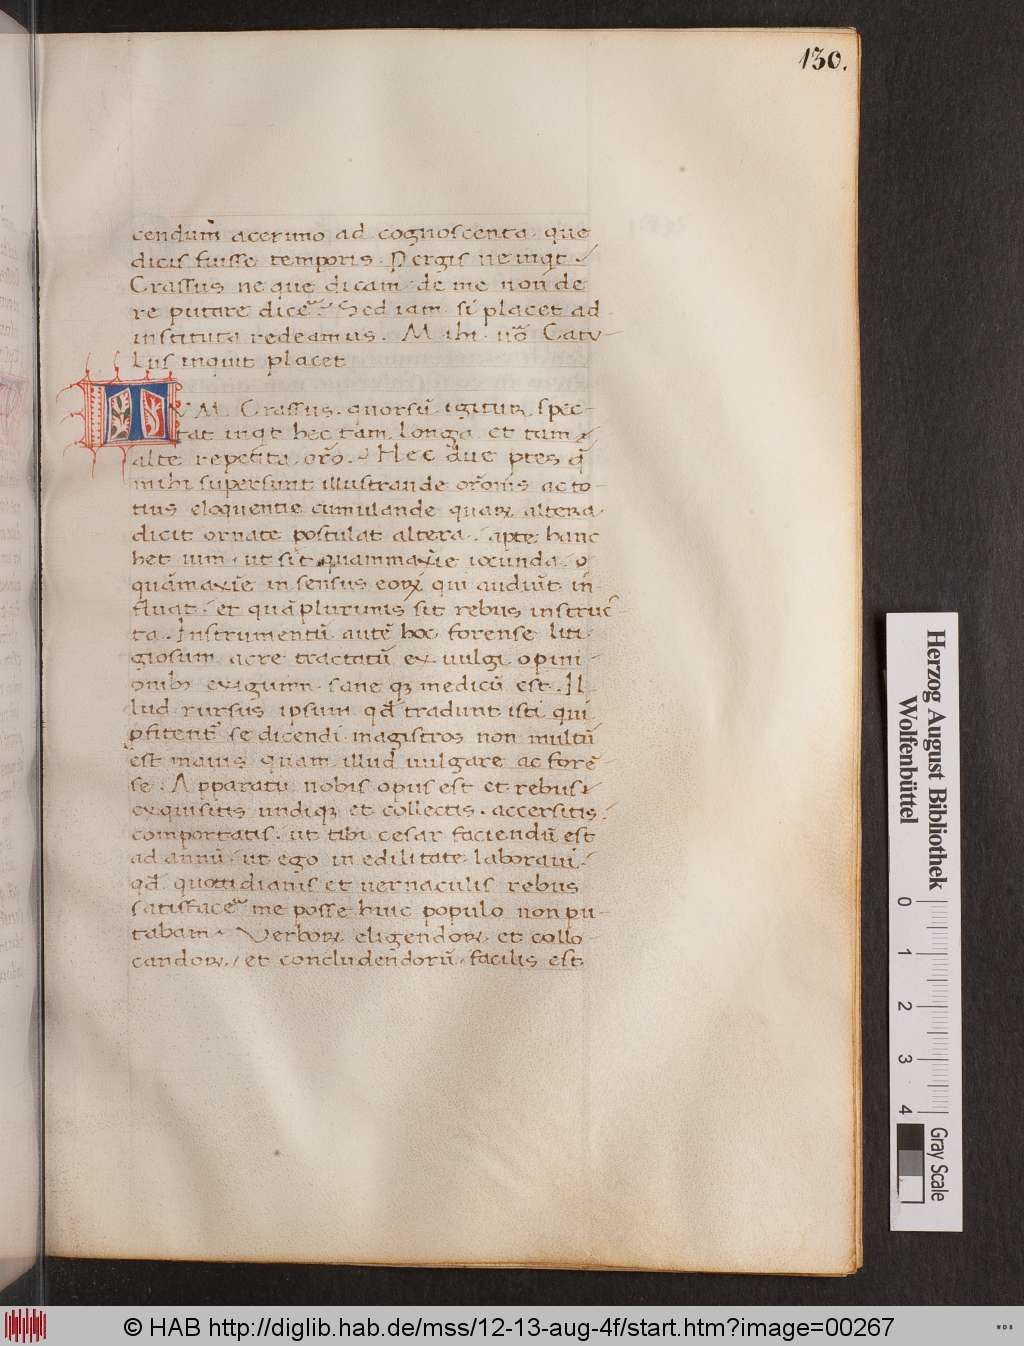 130.
cendum acerrimo ad cognoscenta que
dicis fuisse temporis. Pergis ne inqt
Crassus ne que dicam de me non de
re putare dicẽ Sed iam si placet ad
instituta redeamus. Mihi ṽo Catu-
lus inquit placet
TVM Crassus. quorsũ igitur spec-
tat inqt hec tam longa et tam
alte repetita orõ. Hec due ptes q̃
mihi supersunt illustrande orõnis ac to-
tius eloquentie cumulande quarꝝ altera
dicit ornate postulat altera apte hanc
het uim ut sit quammaxĩe iocunda
quãmaxĩe in sensus eorꝝ qui audiũt in-
fluat et quã plurimis sit rebus instruc-
ta. Instrumentũ autẽ hoc forense liti
giosum acre tractatũ ex uulgi opini-
onibꝫ exiguum sane qꝫ medicũ est. Il
lud rursus ipsum qđ tradunt isti qui
pfitent̃ se dicendi magistros non multũ
est maius quam illud uulgare ac forẽ-
se. Apparatu nobis opus est et rebus
exquisitis undiqꝫ et collectis. accersitis
comportatis. ut tibi cesar faciendũ est
ad annũ ut ego in edilitate laboraui.
qđ quottidianis et uernaculis rebus
satisfacẽ me posse huic populo non pu-
tabam. Verborꝝ eligendorꝝ et collo-
candorꝝ et concludendorũ facilis est
Herzog August Bibliothek
Wolfenbüttel
0 1 2 3 4
Gray Scale
© HAB http://diglib.hab.de/mss/12-13-aug-4f/start.htm?image=00267